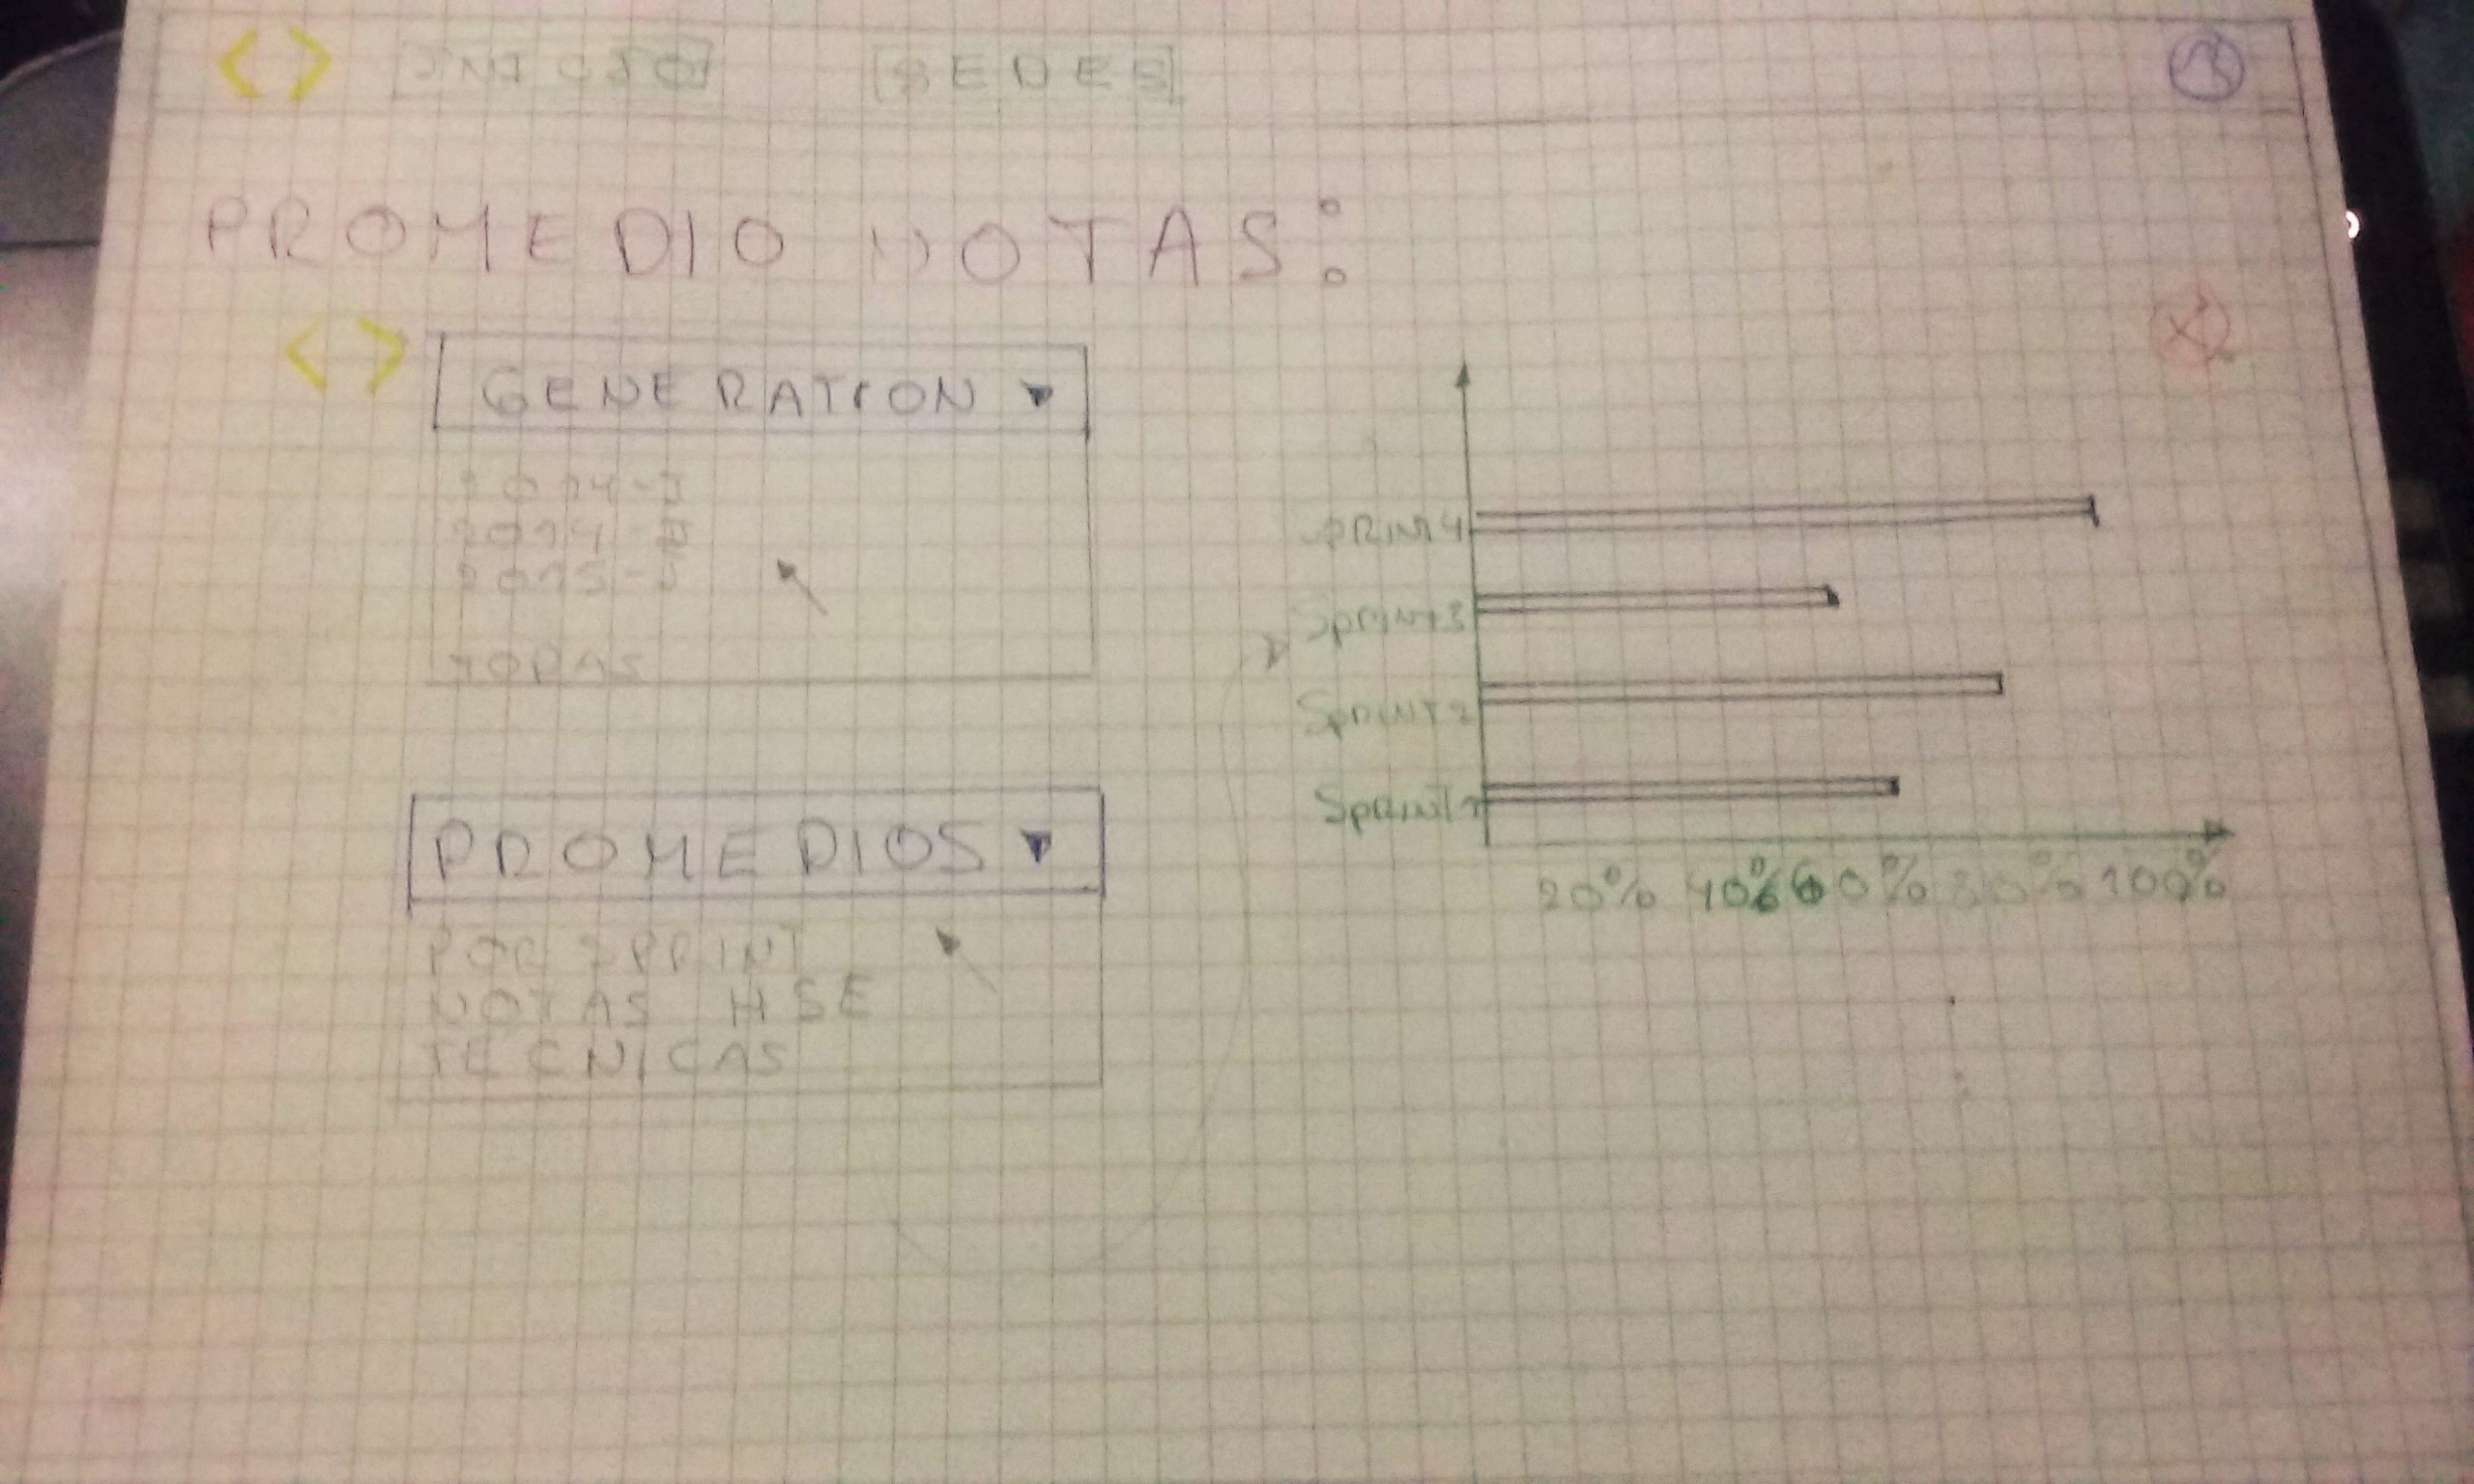 < > INICIO SEDES
PROMEDIO NOTAS:
< > GENERATION ▾
TODAS
PROMEDIOS ▾
POR SPRINT
NOTAS HSE
TECNICAS
SPRINT 4
Sprint 3
Sprint 2
Sprint 1
20% 40% 60% 80% 100%